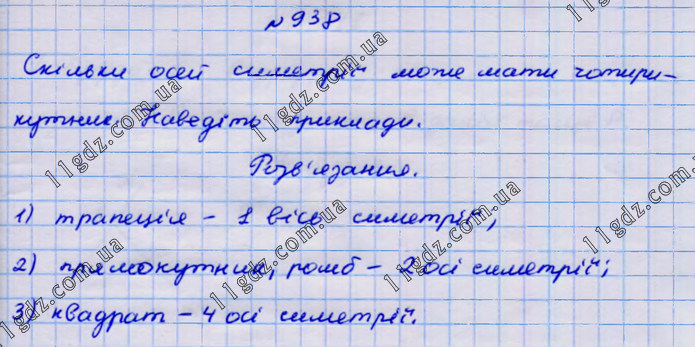 № 938
Скільки осей симетрії може мати чотири-
кутник. Наведіть приклади.
Розв'язання.
1) трапеція – 1 вісь симетрії;
2) прямокутник, ромб – 2 осі симетрії;
3) квадрат – 4 осі симетрії.
11gdz.com.ua
11gdz.com.ua
11gdz.com.ua
11gdz.com.ua
11gdz.com.ua
11gdz.com.ua
11gdz.com.ua